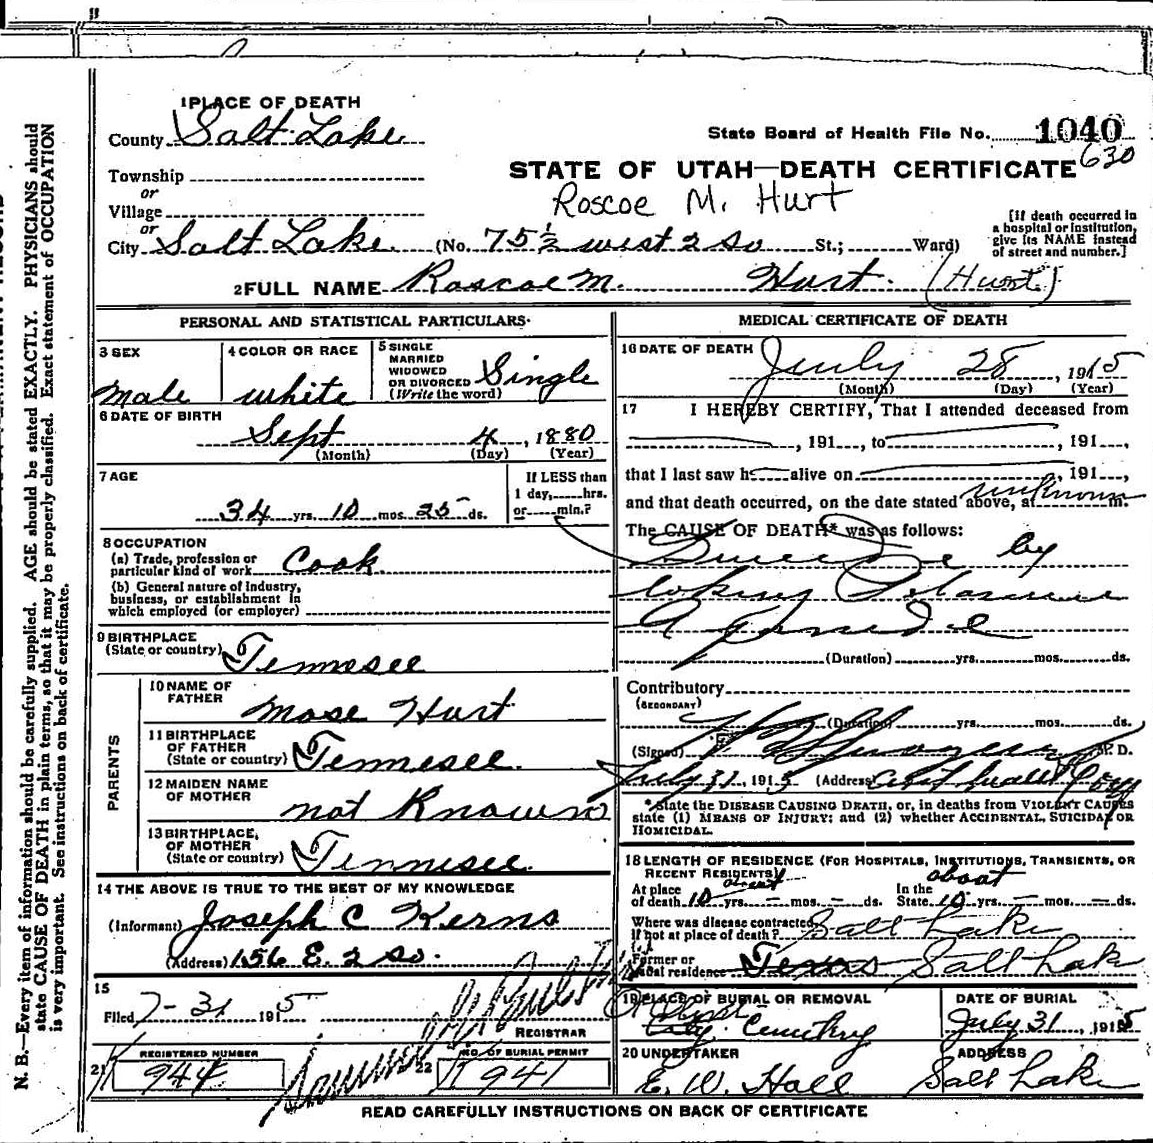 1 PLACE OF DEATH
County Salt Lake
State Board of Health File No. 1040
630
Township
or
Village
or
STATE OF UTAH—DEATH CERTIFICATE
Roscoe M. Hurt
City Salt Lake (No. 75 1/2 west 2 So St.; Ward)
[If death occurred in
a hospital or institution,
give its NAME instead
of street and number.]
2 FULL NAME Roscoe M. Hurt. (Hurt)
PERSONAL AND STATISTICAL PARTICULARS
3 SEX
male
4 COLOR OR RACE
white
5 SINGLE
MARRIED
WIDOWED
OR DIVORCED
(Write the word)
Single
6 DATE OF BIRTH
Sept 4, 1880
(Month) (Day) (Year)
7 AGE
34 yrs. 10 mos. 25 ds.
If LESS than
1 day, hrs.
or min.?
8 OCCUPATION
(a) Trade, profession or
particular kind of work Cook
(b) General nature of industry,
business, or establishment in
which employed (or employer)
9 BIRTHPLACE
(State or country) Tennesee
PARENTS
10 NAME OF
FATHER
Mose Hurt
11 BIRTHPLACE
OF FATHER
(State or country) Tennesee.
12 MAIDEN NAME
OF MOTHER
not Known
13 BIRTHPLACE
OF MOTHER
(State or country) Tennesee.
14 THE ABOVE IS TRUE TO THE BEST OF MY KNOWLEDGE
(Informant) Joseph C Kerns
(Address) 156 E. 2 So.
15
Filed 7-31 1915
REGISTRAR
21 REGISTERED NUMBER
944
22 NO. OF BURIAL PERMIT
941
MEDICAL CERTIFICATE OF DEATH
16 DATE OF DEATH
July 28, 1915
(Month) (Day) (Year)
17 I HEREBY CERTIFY, That I attended deceased from
, 191 , to , 191 ,
that I last saw h alive on , 191 ,
and that death occurred, on the date stated above, at unknown m.
The CAUSE OF DEATH* was as follows:
Suicide by
(Duration) yrs. mos. ds.
Contributory
(SECONDARY)
(Duration) yrs. mos. ds.
(Signed) M. D.
July 31, 1915 (Address)
*State the DISEASE CAUSING DEATH, or, in deaths from VIOLENT CAUSES
state (1) MEANS OF INJURY; and (2) whether ACCIDENTAL, SUICIDAL OR
HOMICIDAL.
18 LENGTH OF RESIDENCE (FOR HOSPITALS, INSTITUTIONS, TRANSIENTS, OR
RECENT RESIDENTS)
At place
of death 10 yrs. — mos. — ds. about
In the
State 10 yrs. — mos. — ds. about
Where was disease contracted,
If not at place of death? Salt Lake
Former or
usual residence Texas Salt Lake
19 PLACE OF BURIAL OR REMOVAL
City Cemetry
DATE OF BURIAL
July 31, 1915
20 UNDERTAKER
E. W. Hall
ADDRESS
Salt Lake
READ CAREFULLY INSTRUCTIONS ON BACK OF CERTIFICATE
N. B.—Every item of information should be carefully supplied. AGE should be stated EXACTLY. PHYSICIANS should
state CAUSE OF DEATH in plain terms, so that it may be properly classified. Exact statement of OCCUPATION
is very important. See instructions on back of certificate.